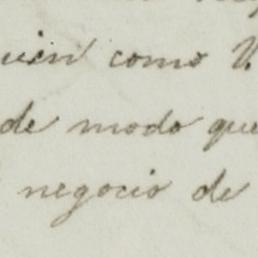 quien como V.
de modo que
negocio de